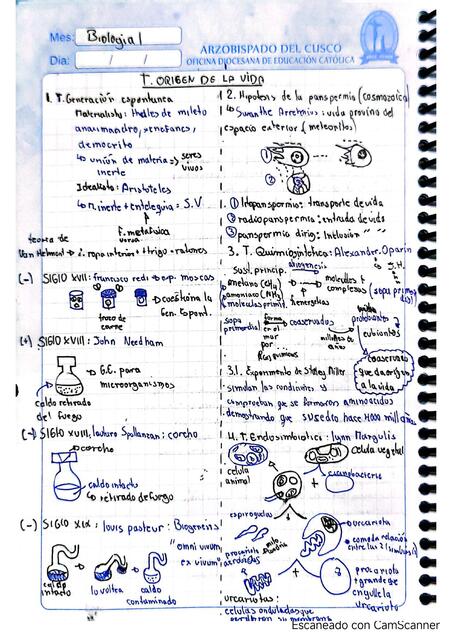 Mes: Biologia I
ARZOBISPADO DEL CUSCO
Dia: / /
OFICINA DIOCESANA DE EDUCACIÓN CATÓLICA
T. ORIGEN DE LA VIDA
1. T. Generación espontanea
Materialista: thales de mileto
anaximandro, xenofanes,
democrito
↳ unión de materia => seres
inerte vivos
Idealista: Aristoteles
↳ M. inerte + entelequia = S.V
F. metafisica
teoria de
Van Helmont → 1. ropa interior + trigo = ratones
(-) SIGLO XVII: francisco redi → exp. moscas
→ cuestiona la
gen. Espont.
trozo de
carne
(+) SIGLO XVIII: John Needham
→ G.E. para
microorganismos
caldo retirado
del fuego
(-) SIGLO XVIII: Spallanzani: corcho
corcho
caldo intacto
↳ retirado de fuego
(-) SIGLO XIX: louis pasteur: Biogenesis
"omni vivum,
ex vivum"
caldo
intacto
lo voltea
caldo
contaminado
2. Hipotesis de la panspermia (cosmozoica)
↳ Svante Arrhenius: vida provino del
espacio exterior (meteoritos)
①
②
① litopanspermia: transporte de vida
② radiopanspermia: entrada de vida
③ panspermia dirig: inclusión " "
3. T. Quimiosintetica: Alexander Oparin
Sust. princip.
metano (CH4)
amoniaco (NH3)
→ molecules
complexas (sopa primordial)
+ energias
sopa
primordial
forma
en el
mar
por
coaservados
millones
de años
protobiontes
eubiontes
coaservado
que da origen
a la vida
3.1. Experimento de Stanley Miller
simulan las condiciones y
comprueban que se formaron aminoacidos
demostrando que sucedio hace 4000 mill años
4. T. Endosimbiotica: lynn Margulis
celula
animal
celula vegetal
cianobacteria
espiroquetas
eucariota
procariota
como da relación
entre las 2 (simbiosis)
procariota
+ grande que
engulle la
eucariotas:
celulas onduladas que
Escaneado con CamScanner